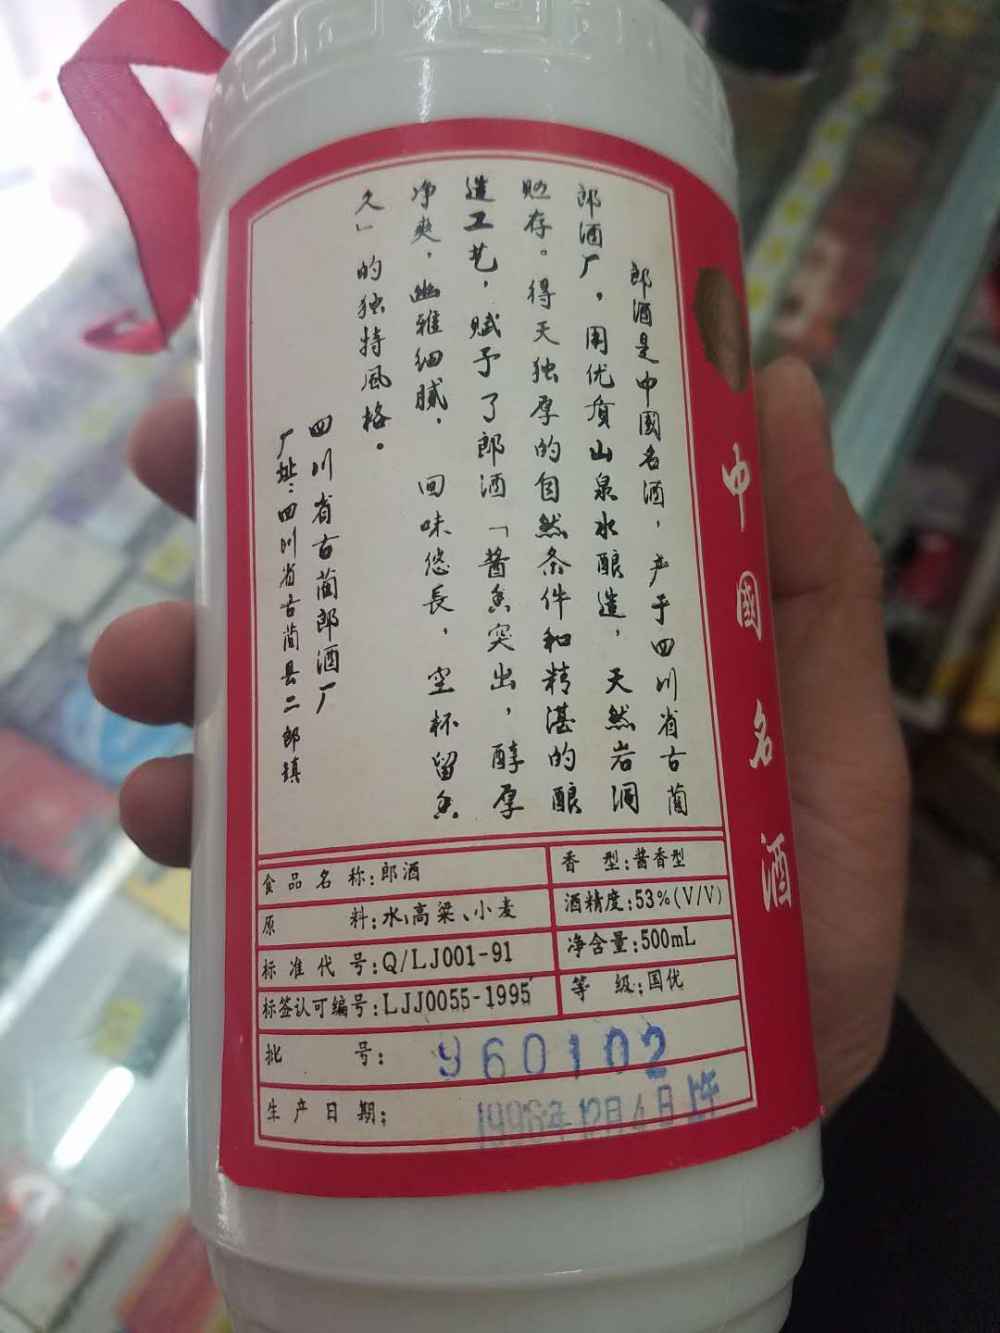 郎酒是中國名酒，产于四川省古蔺
郎酒厂，用优质山泉水酿造，天然岩洞
贮存。得天独厚的自然条件和精湛的酿
造工艺，赋予了郎酒「酱香突出，醇厚
净爽，幽雅细腻，回味悠長，空杯留香
久」的独特风格。
四川省古蔺郎酒厂
厂址：四川省古蔺县二郎镇
食品名称：郎酒
香型：酱香型
原料：水、高粱、小麦
酒精度：53%(V/V)
标准代号：Q/LJ001-91
净含量：500mL
标签认可编号：LJJ0055-1995
等级：国优
批号：960102
生产日期：1996年12月4日上午
中國名酒